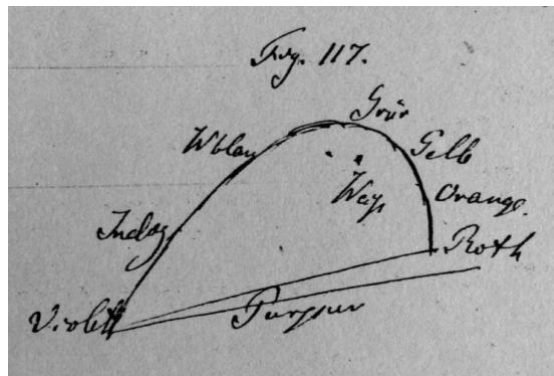 Fig. 117.
Grün
Wblau
Gelb
Weiß
Orange.
Indog
Roth
Violett
Purpur